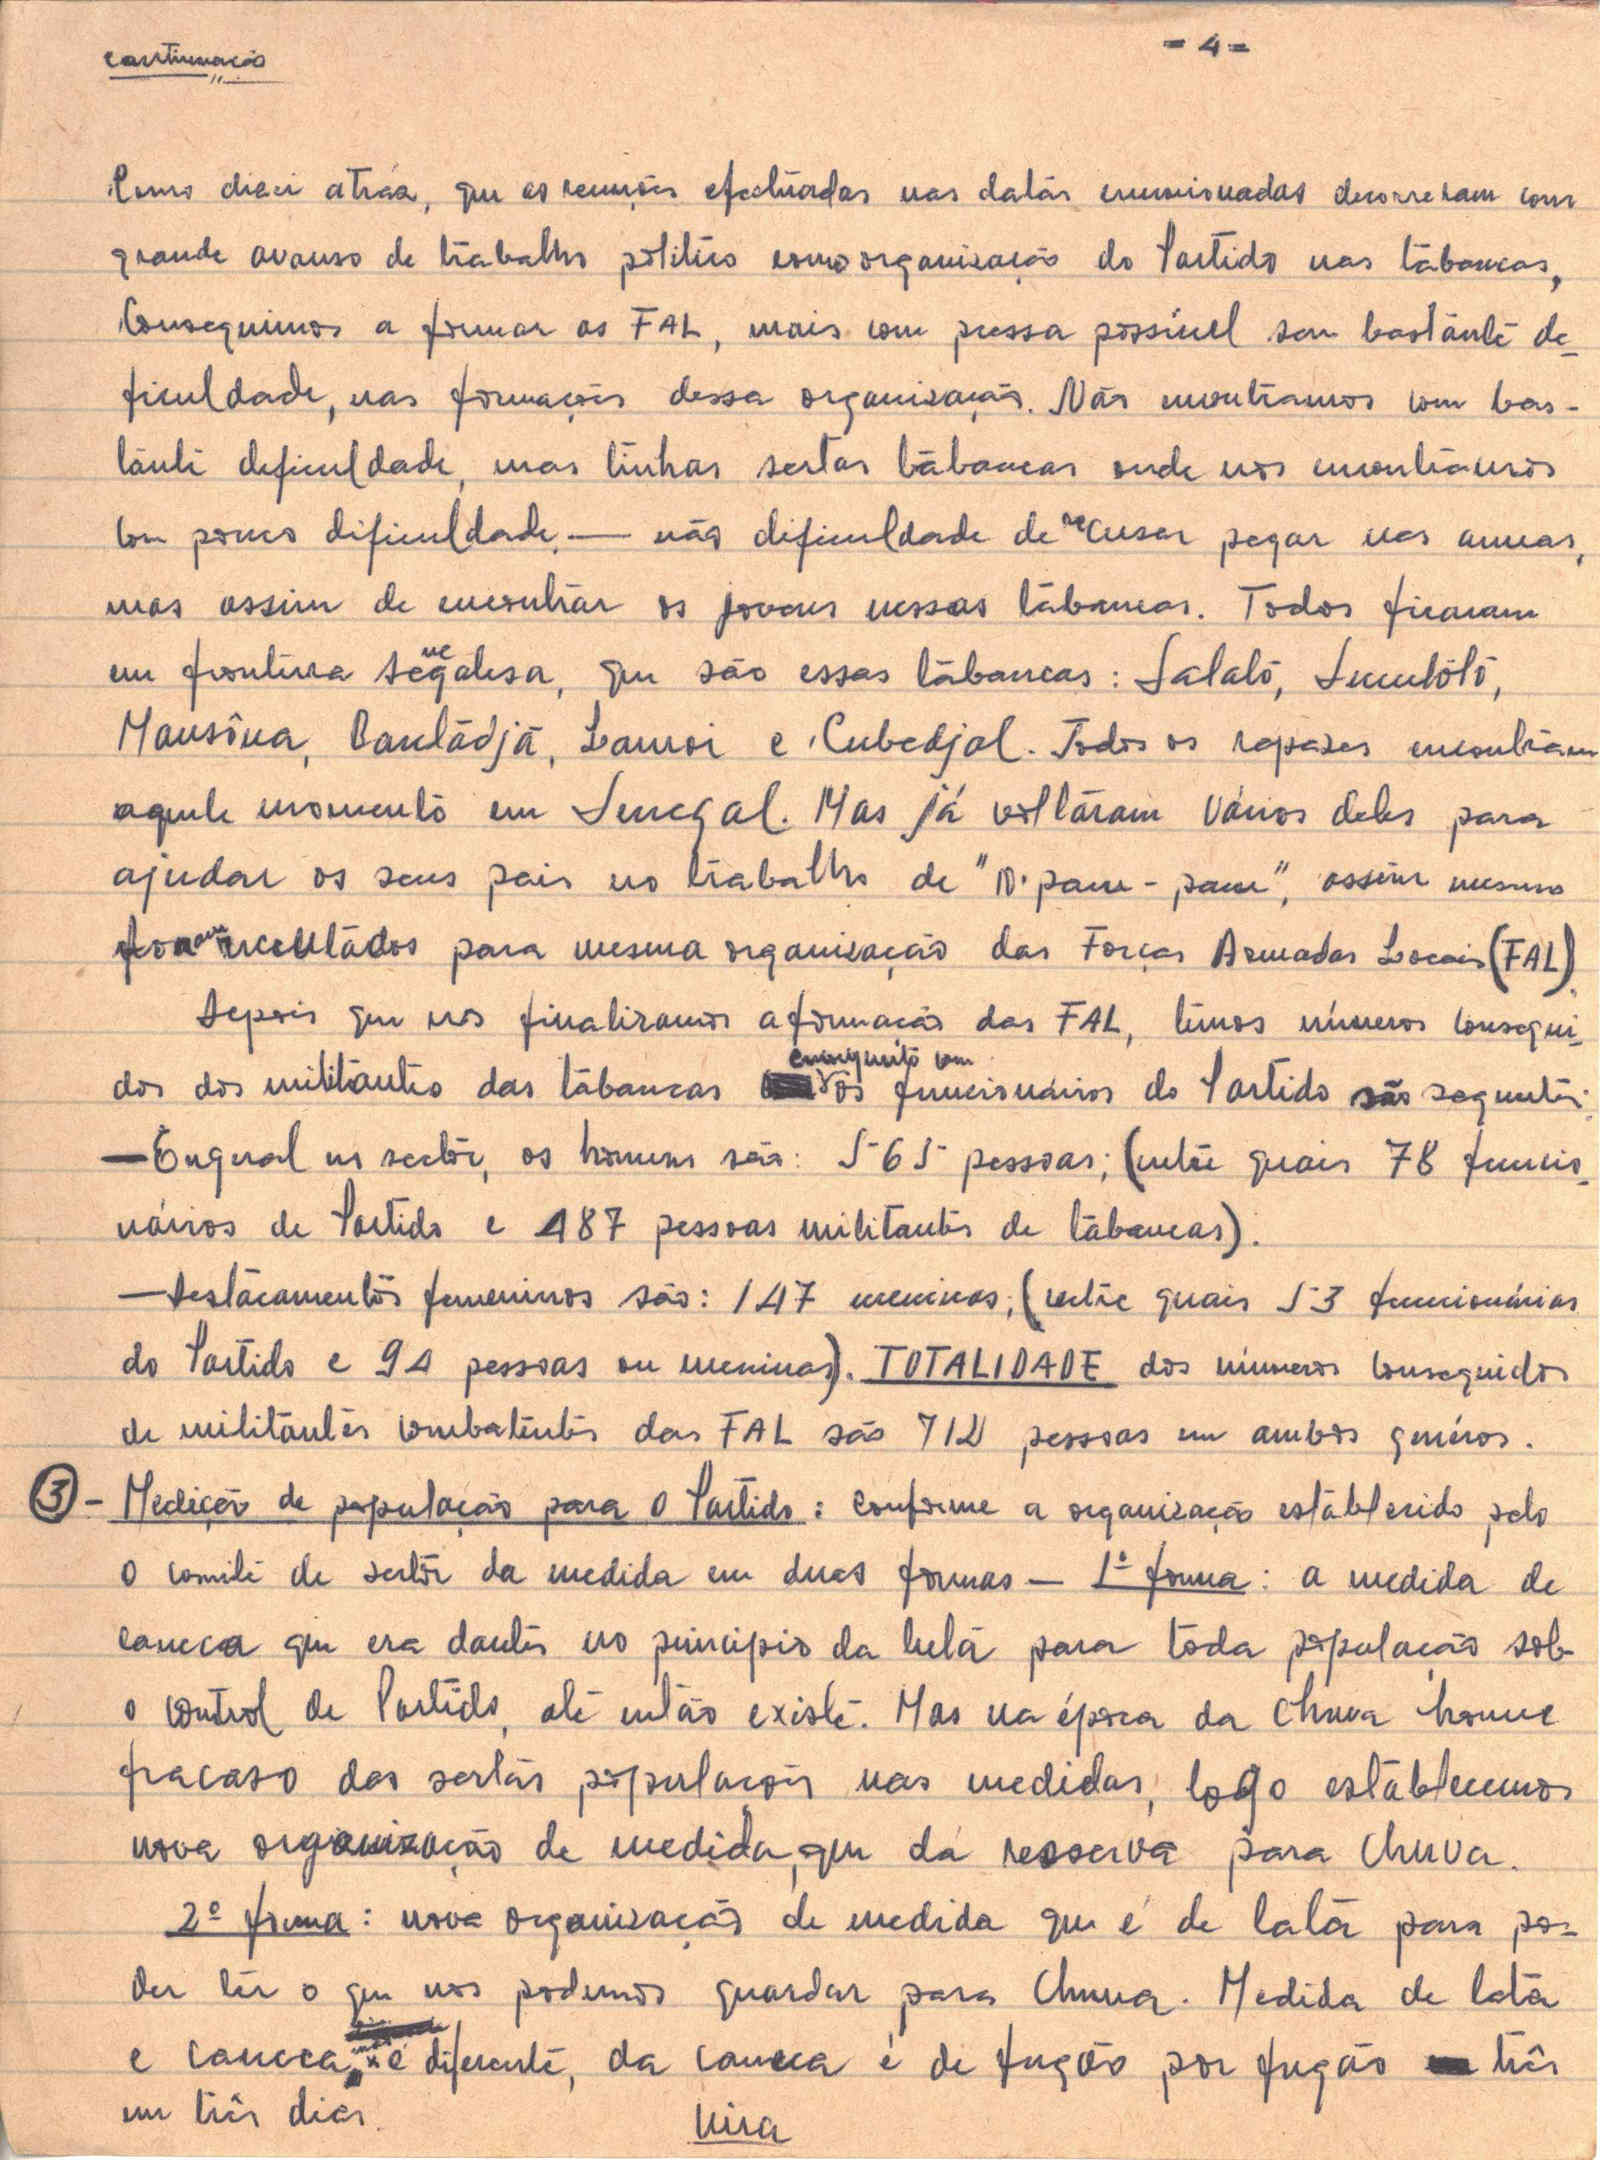 continuação
- 4 -
Como disei atráz, que as reuniões efectuadas nas datas emmisonadas decorreram com
grande avanso de trabalho politico como organização do Partido nas tabancas,
Conseguimos a formar as FAL, mais com pressa possivel sem bastante de-
ficuldade, nas formações dessa organização. Não encontramos com bas-
tante deficuldade, mas tinhas sertas tabancas onde nos encontramos
com pouco dificuldade. — não dificuldade de recusar pegar nas armas,
mas assim de encontrar os jovens nessas tabancas. Todos ficaram
em frontera senegalesa, que são essas tabancas: Salaló, Sucutótó,
Mansôna, Bantādjā, Lamoi e Cubedjal. Todos os rapazes encontram
aquele momento em Senegal. Mas já voltáram vários deles para
ajudar os seus pais no trabalho de "N'pam-pam", assim mesmo
foram recultádos para mesma organização das Forças Armadas Locais (FAL).
Depois que nos finalizamos a formação das FAL, temos números consegui-
dos dos militantes das tabancas enconjunto com os funcionários do Partido são seguntes:
— Engeral no sector, os homens são: 565 pessoas; (entre quais 78 funcio-
nários de Partido e 487 pessoas militantes de tabancas).
— Destacamentos femeninos são: 147 meninas; (entre quais 53 funcionárias
do Partido e 94 pessoas ou meninas). TOTALIDADE dos números conseguidos
de militantes combatentes das FAL são 712 pessoas em ambos genéros.
③ - Medição de população para o Partido: Conforme a organização estáblesido pelo
o comité de sector da medida em duas formas — 1ª forma: a medida de
caneca que era dantes no principio da luta para toda população sob
o control de Partido, até então existe. Mas na época da Chuva houve
fracaso das sertas populações nas medidas, logo establecemos
nova organização de medida, que dá resserva para Chuva.
2º forma: nova organização de medida que é de lata para po-
der ter o que nos podemos guardar para Chuva. Medida de lata
e caneca é diferente, da caneca é de fugão por fugão três
em três dias.
Vira